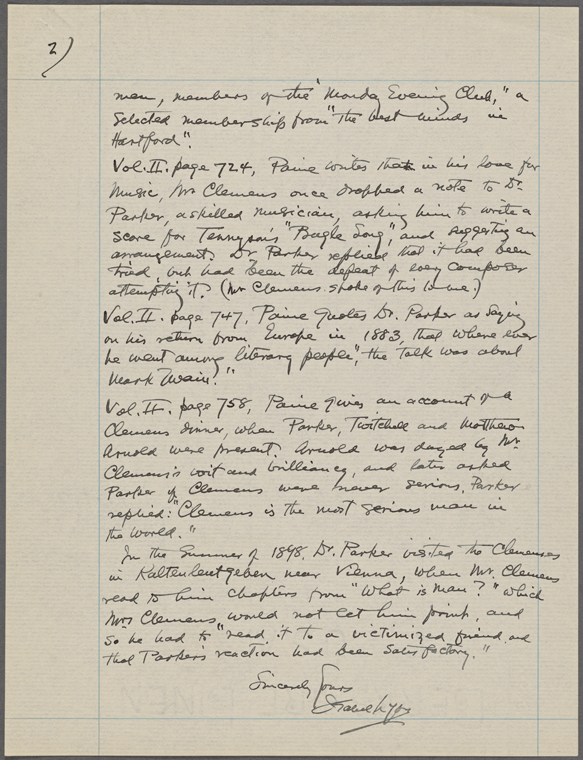 2)
men, members of the "Monday Evening Club," a
selected membership from "the best minds in
Hartford".
Vol. II. page 724, Paine writes that in his love for
music, Mr Clemens once dropped a note to Dr.
Parker, a skilled musician, asking him to write a
score for Tennyson's "Bugle Song," and suggesting an
arrangement. Dr. Parker replied that it had been
tried, but had been the defeat of every composer
attempting it. (Mr Clemens spoke of this to me.)
Vol. II. page 747, Paine quotes Dr. Parker as saying
on his return from Europe in 1883, that where ever
he went among literary people, "the talk was about
Mark Twain."
Vol. II. page 758, Paine gives an account of a
Clemens dinner, when Parker, Twitchell and Matthew
Arnold were present. Arnold was dazed by Mr.
Clemens's wit and brilliancy, and later asked
Parker if Clemens were never serious. Parker
replied: "Clemens is the most serious man in
the world."
In the Summer of 1898, Dr. Parker visited the Clemenses
in Kaltenleutgeben near Vienna, when Mr. Clemens
read to him chapters from "What is Man?" which
Mrs Clemens would not let him print, and
so he had to "read it to a victimized friend, and
that Parker's reaction had been satisfactory."
Sincerely Yours
Isabel Lyon